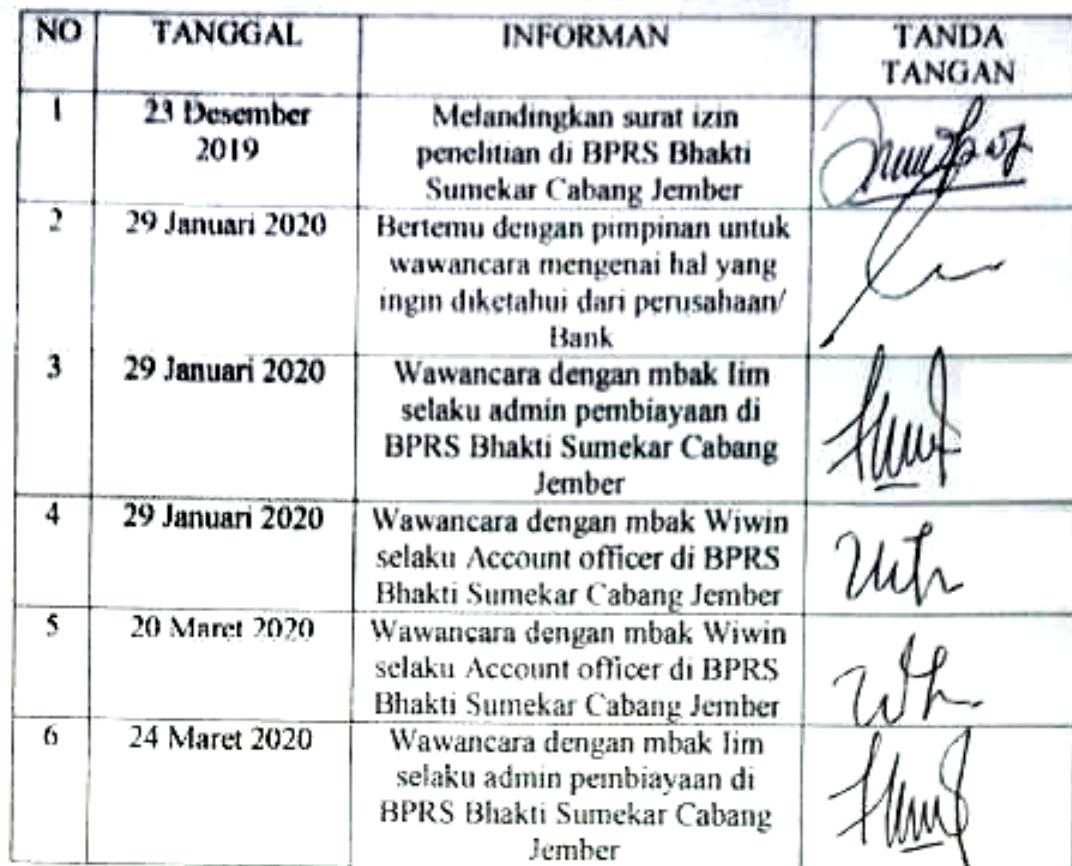 NO TANGGAL INFORMAN TANDA
TANGAN
1 23 Desember Melandingkan surat izin
2019 penelitian di BPRS Bhakti
Sumekar Cabang Jember
2 29 Januari 2020 Bertemu dengan pimpinan untuk
wawancara mengenai hal yang
ingin diketahui dari perusahaan/
Bank
3 29 Januari 2020 Wawancara dengan mbak Iim
selaku admin pembiayaan di
BPRS Bhakti Sumekar Cabang
Jember
4 29 Januari 2020 Wawancara dengan mbak Wiwin
selaku Account officer di BPRS
Bhakti Sumekar Cabang Jember
5 20 Maret 2020 Wawancara dengan mbak Wiwin
selaku Account officer di BPRS
Bhakti Sumekar Cabang Jember
6 24 Maret 2020 Wawancara dengan mbak Iim
selaku admin pembiayaan di
BPRS Bhakti Sumekar Cabang
Jember